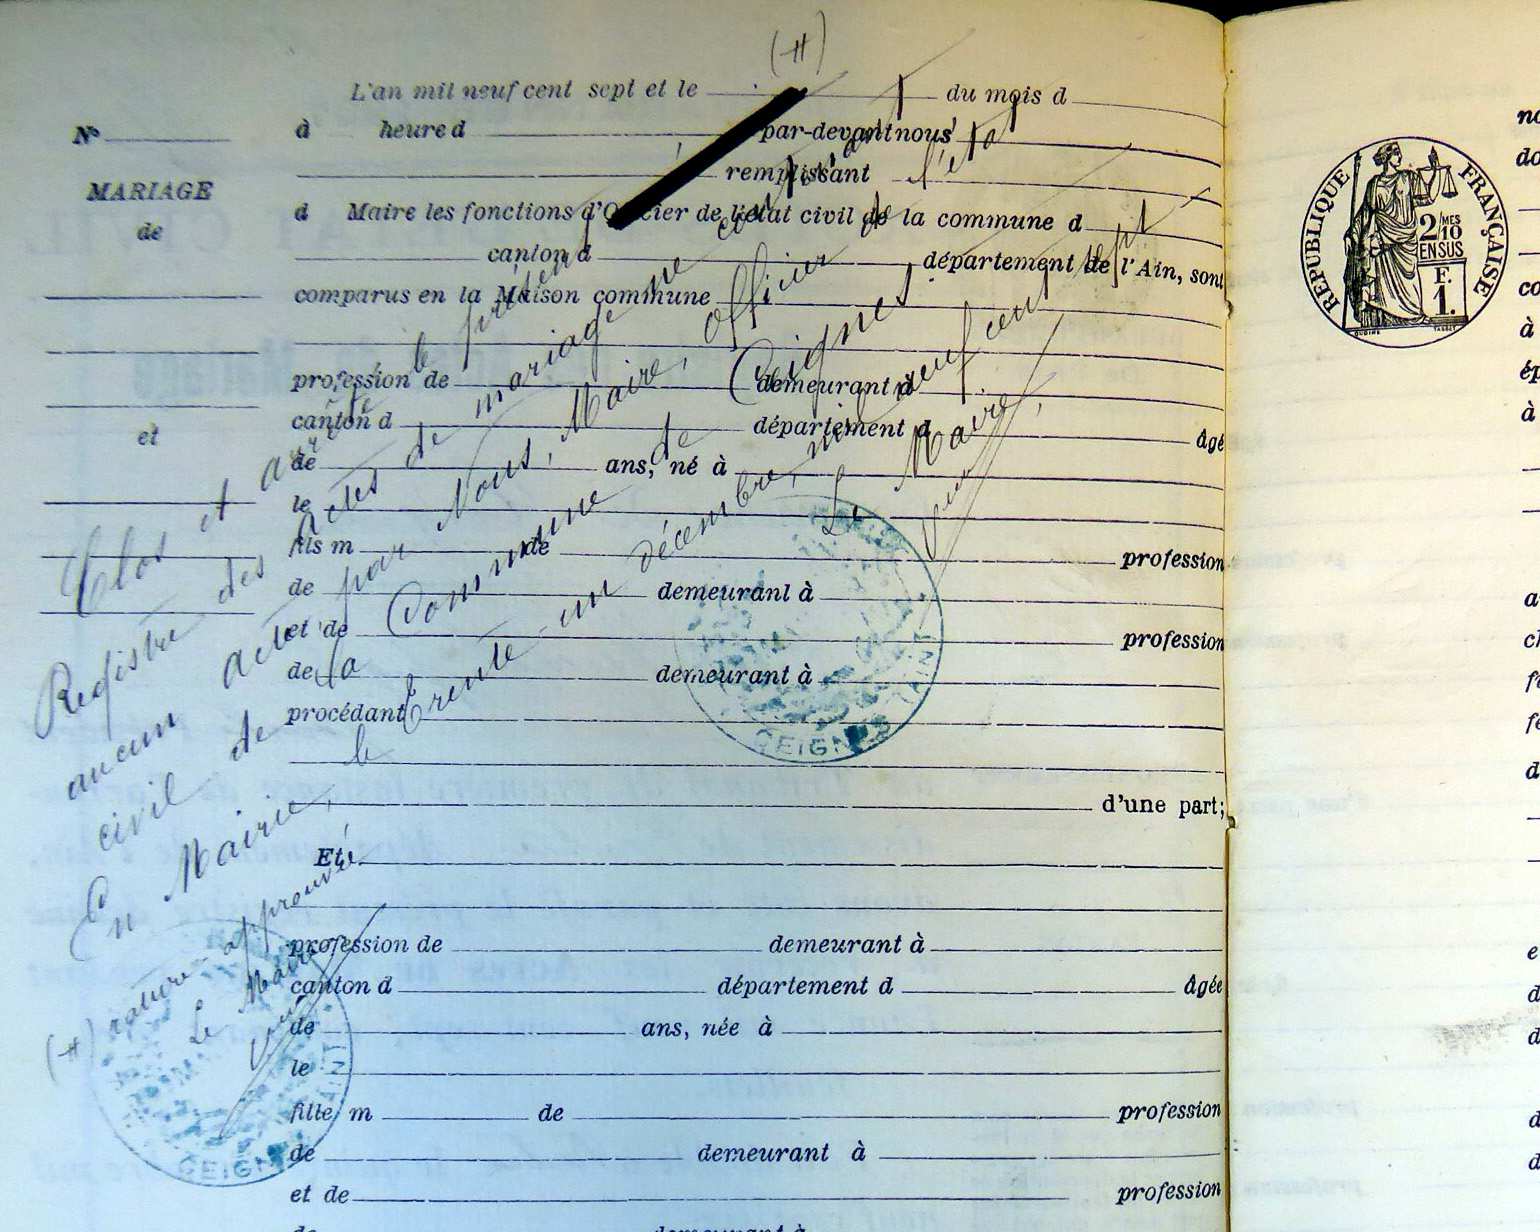 (H)
L'an mil neuf cent sept et le du mois d
N° à heure d par-devant nous
remplissant
MARIAGE
de
d Maire les fonctions d'Officier de l'état civil de la commune d
canton d département de l'Ain, sont
comparus en la Maison commune
profession de demeurant à
canton d département d âgé
et
de ans, né à
le
fils m de profession
de demeurant à
et de profession
de demeurant à
procédant
d'une part;
Et
profession de demeurant à
canton d département d âgée
de ans, née à
le
fille m de profession
de demeurant à
et de profession
de demeurant à
Clos et arrêté le présent
Registre des Actes de mariage ne contenant
aucun acte par Nous, Maire, Officier de l'état
civil de la Commune de Ceignes.
En Mairie, le trente-un décembre, mil neuf cent sept
Le Maire,
CEIGNES (AIN)
(H) rature approuvée
Le Maire
CEIGNES (AIN)
RÉPUBLIQUE FRANÇAISE
2/10 MES
EN SUS
F.
1.